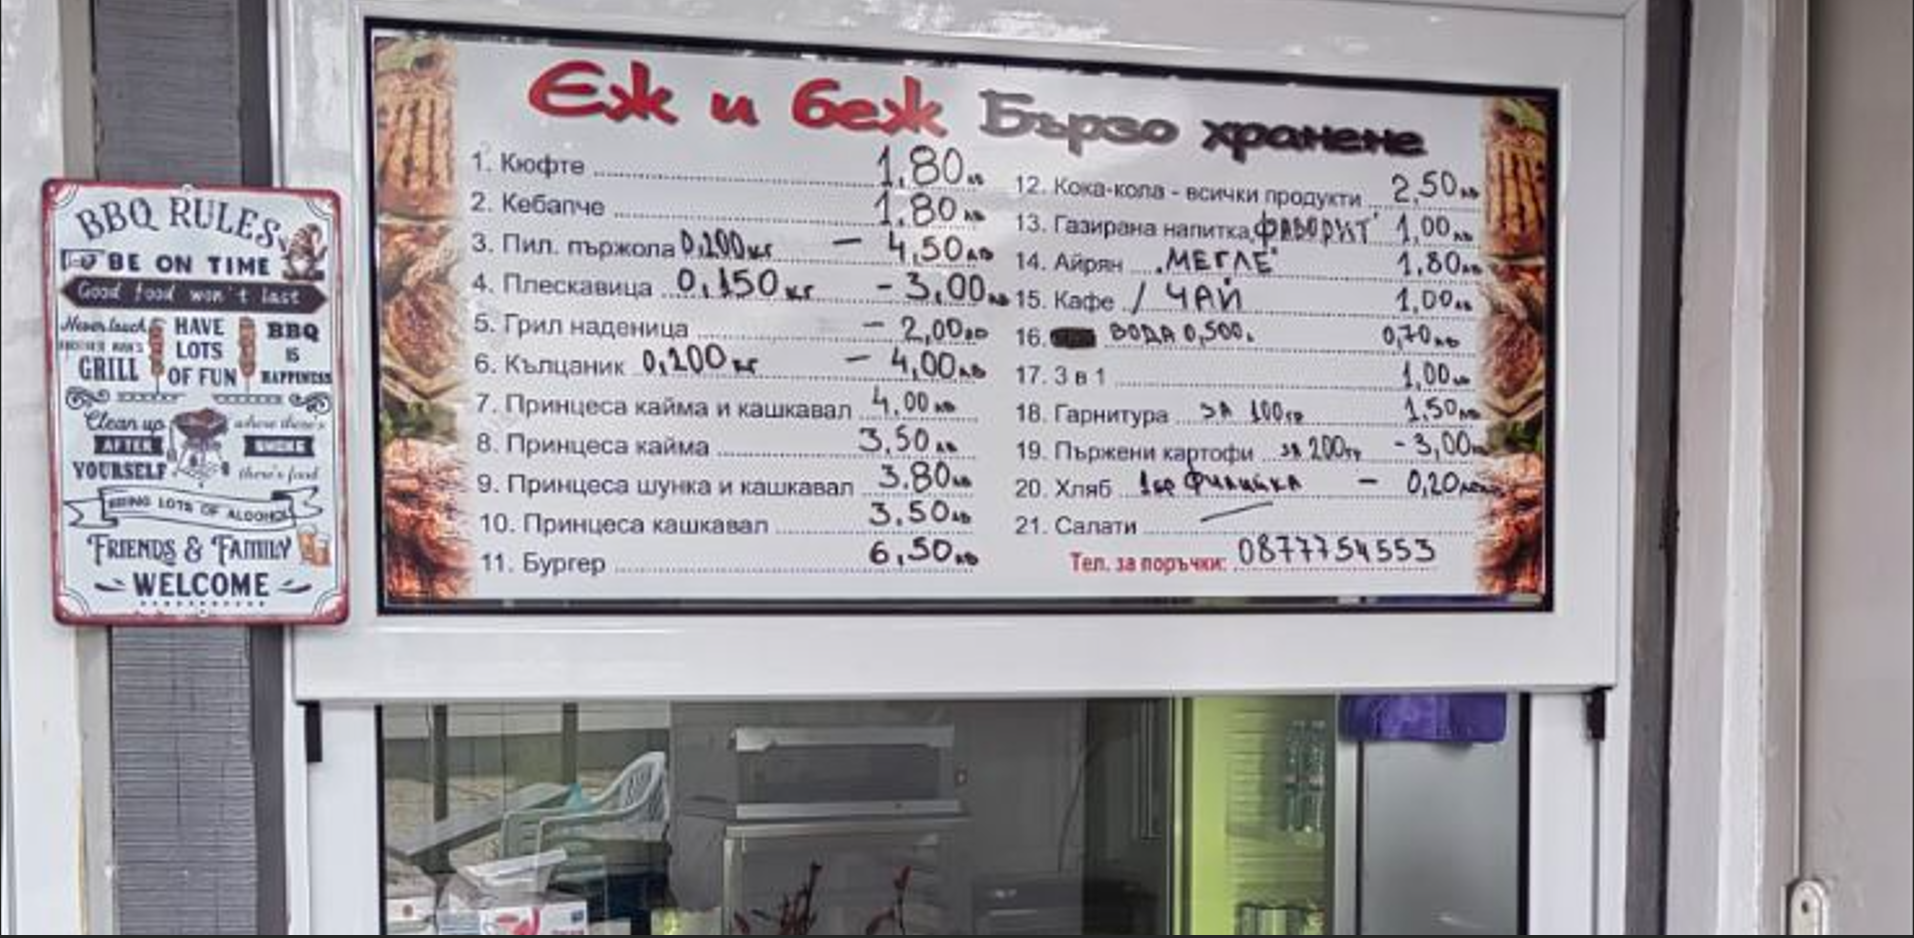 BBQ RULES
BE ON TIME
Good food won't last
Never touch
ANOTHER MAN'S
GRILL
HAVE
LOTS
OF FUN
BBQ
IS
HAPPINESS
Clean up
AFTER
YOURSELF
where there's
SMOKE
there's food
BRING LOTS OF ALCOHOL
FRIENDS & FAMILY
WELCOME
Еж и беж Бързо хранене
1. Кюфте 1.80лв
2. Кебапче 1.80лв
3. Пил. пържола 0,200кг - 4,50лв
4. Плескавица 0,150кг - 3,00лв
5. Грил наденица - 2,00лв
6. Кълцаник 0,200кг - 4,00лв
7. Принцеса кайма и кашкавал 4,00лв
8. Принцеса кайма 3,50лв
9. Принцеса шунка и кашкавал 3.80лв
10. Принцеса кашкавал 3.50лв
11. Бургер 6,50лв
12. Кока-кола - всички продукти 2,50лв
13. Газирана напитка „ФАВОРИТ" 1,00лв
14. Айрян „МЕГЛЕ" 1.80лв
15. Кафе / ЧАЙ 1,00лв
16. ВОДА 0,500л 0,70лв
17. 3 в 1 1,00лв
18. Гарнитура ЗА 100гр 1,50лв
19. Пържени картофи за 200гр - 3,00лв
20. Хляб 1бр филийка - 0,20лева
21. Салати
Тел. за поръчки: 0877754553